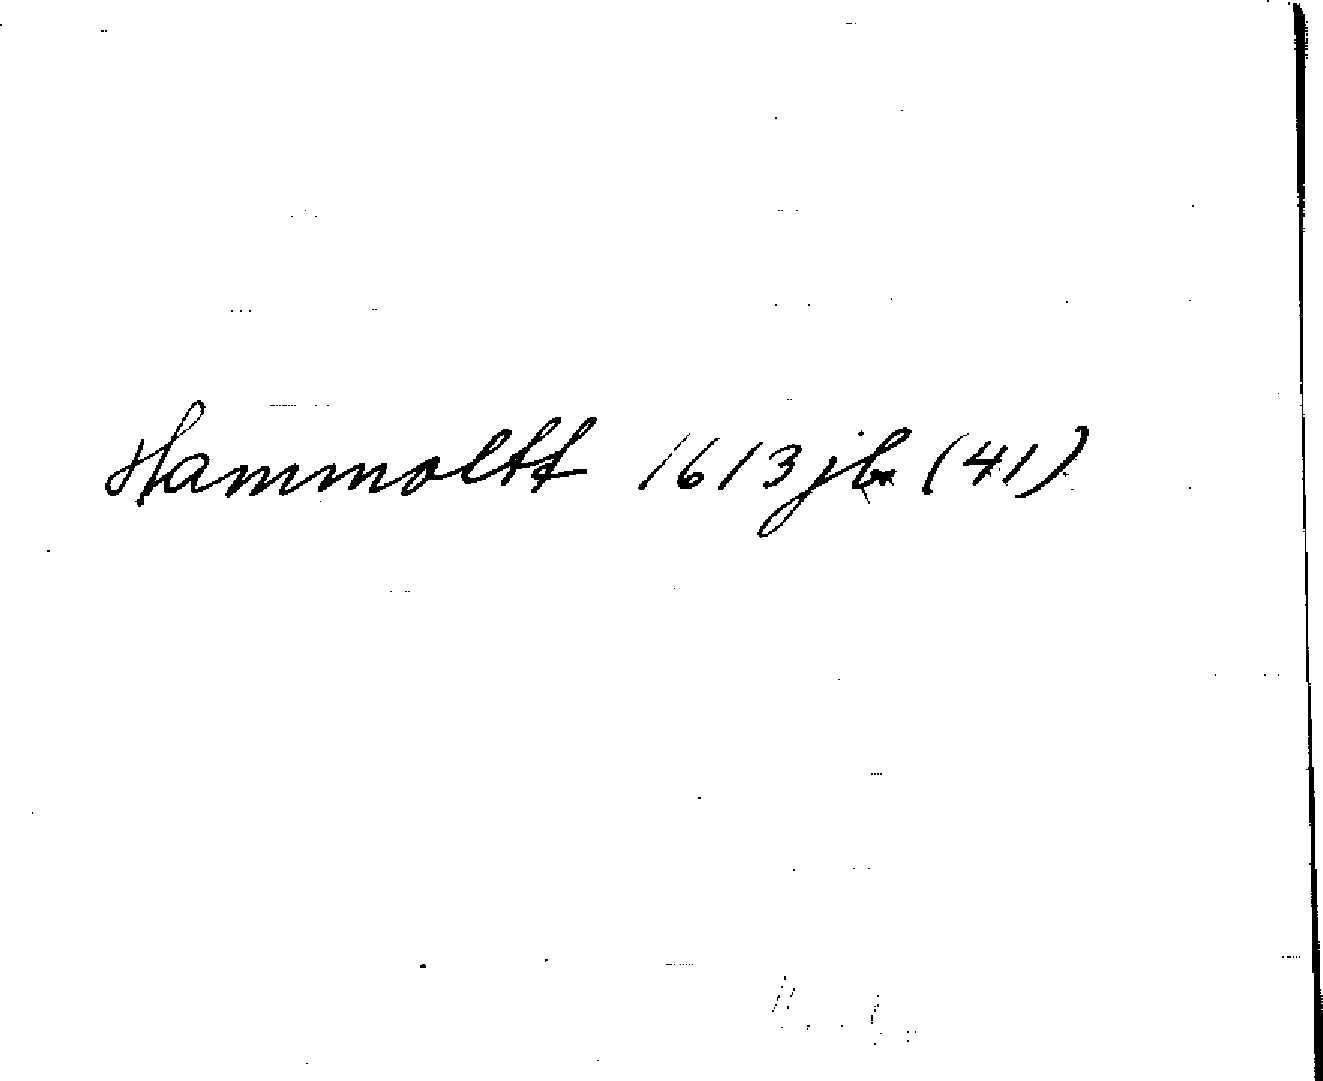 Hammoltt 1613 jb (41)